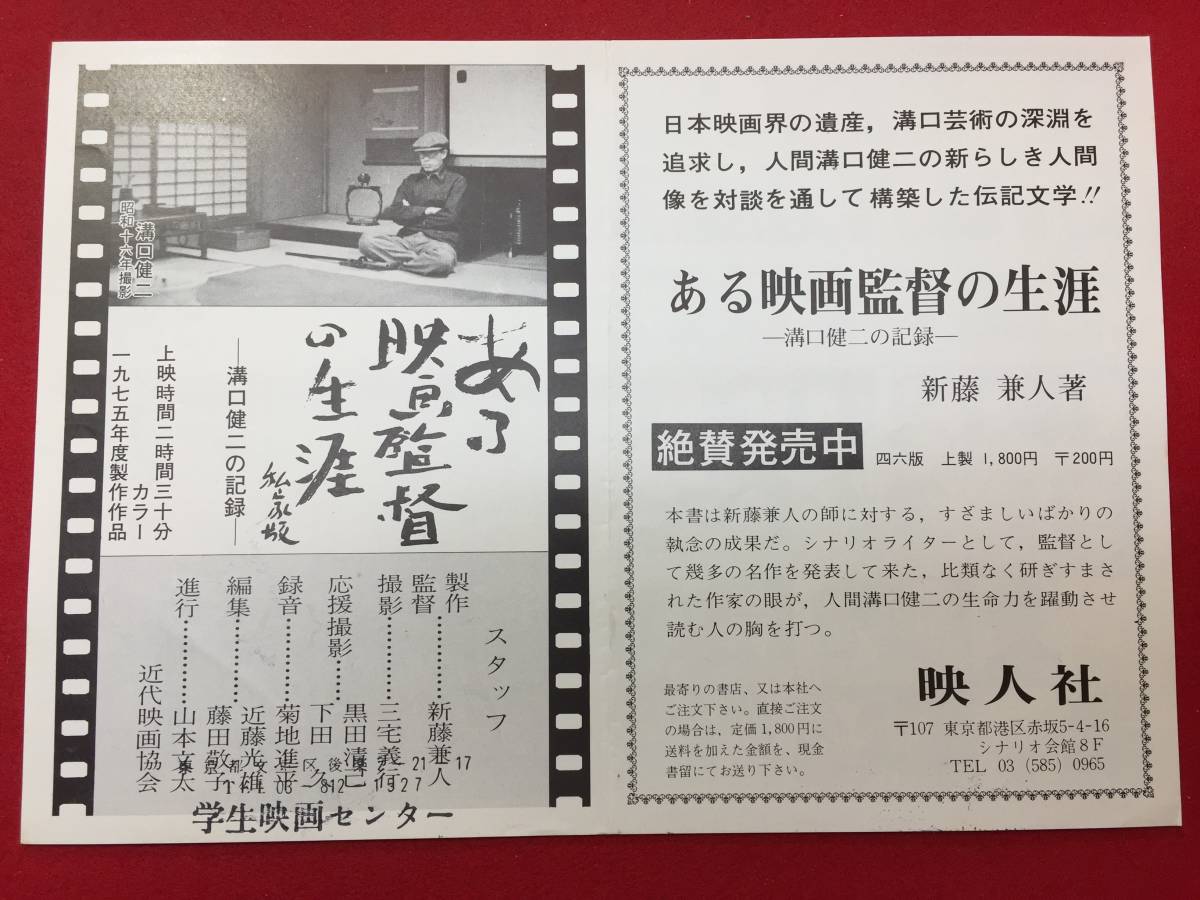 溝口健二
昭和十六年撮影
ある
映画監督
の生涯
私家版
―溝口健二の記録―
上映時間二時間三十分
カラー
一九七五年度製作作品
スタッフ
製作
監督…………新藤兼人
撮影…………三宅義行
黒田清己
応援撮影……下田　久
録音…………菊地進平
近藤光雄
編集…………藤田敬子
進行…………山本文太
近代映画協会
学生映画センター
日本映画界の遺産，溝口芸術の深淵を
追求し，人間溝口健二の新らしき人間
像を対談を通して構築した伝記文学!!
ある映画監督の生涯
―溝口健二の記録―
新藤 兼人著
絶賛発売中
四六版　上製 1,800円　〒200円
本書は新藤兼人の師に対する，すざましいばかりの
執念の成果だ。シナリオライターとして，監督とし
て幾多の名作を発表して来た，比類なく研ぎすまさ
れた作家の眼が，人間溝口健二の生命力を躍動させ
読む人の胸を打つ。
映人社
最寄りの書店、又は本社へ
ご注文下さい。直接ご注文
の場合は，定価1,800円に
送料を加えた金額を、現金
書留にてお送り下さい。
〒107 東京都港区赤坂5-4-16
シナリオ会館８Ｆ
TEL 03 (585) 0965